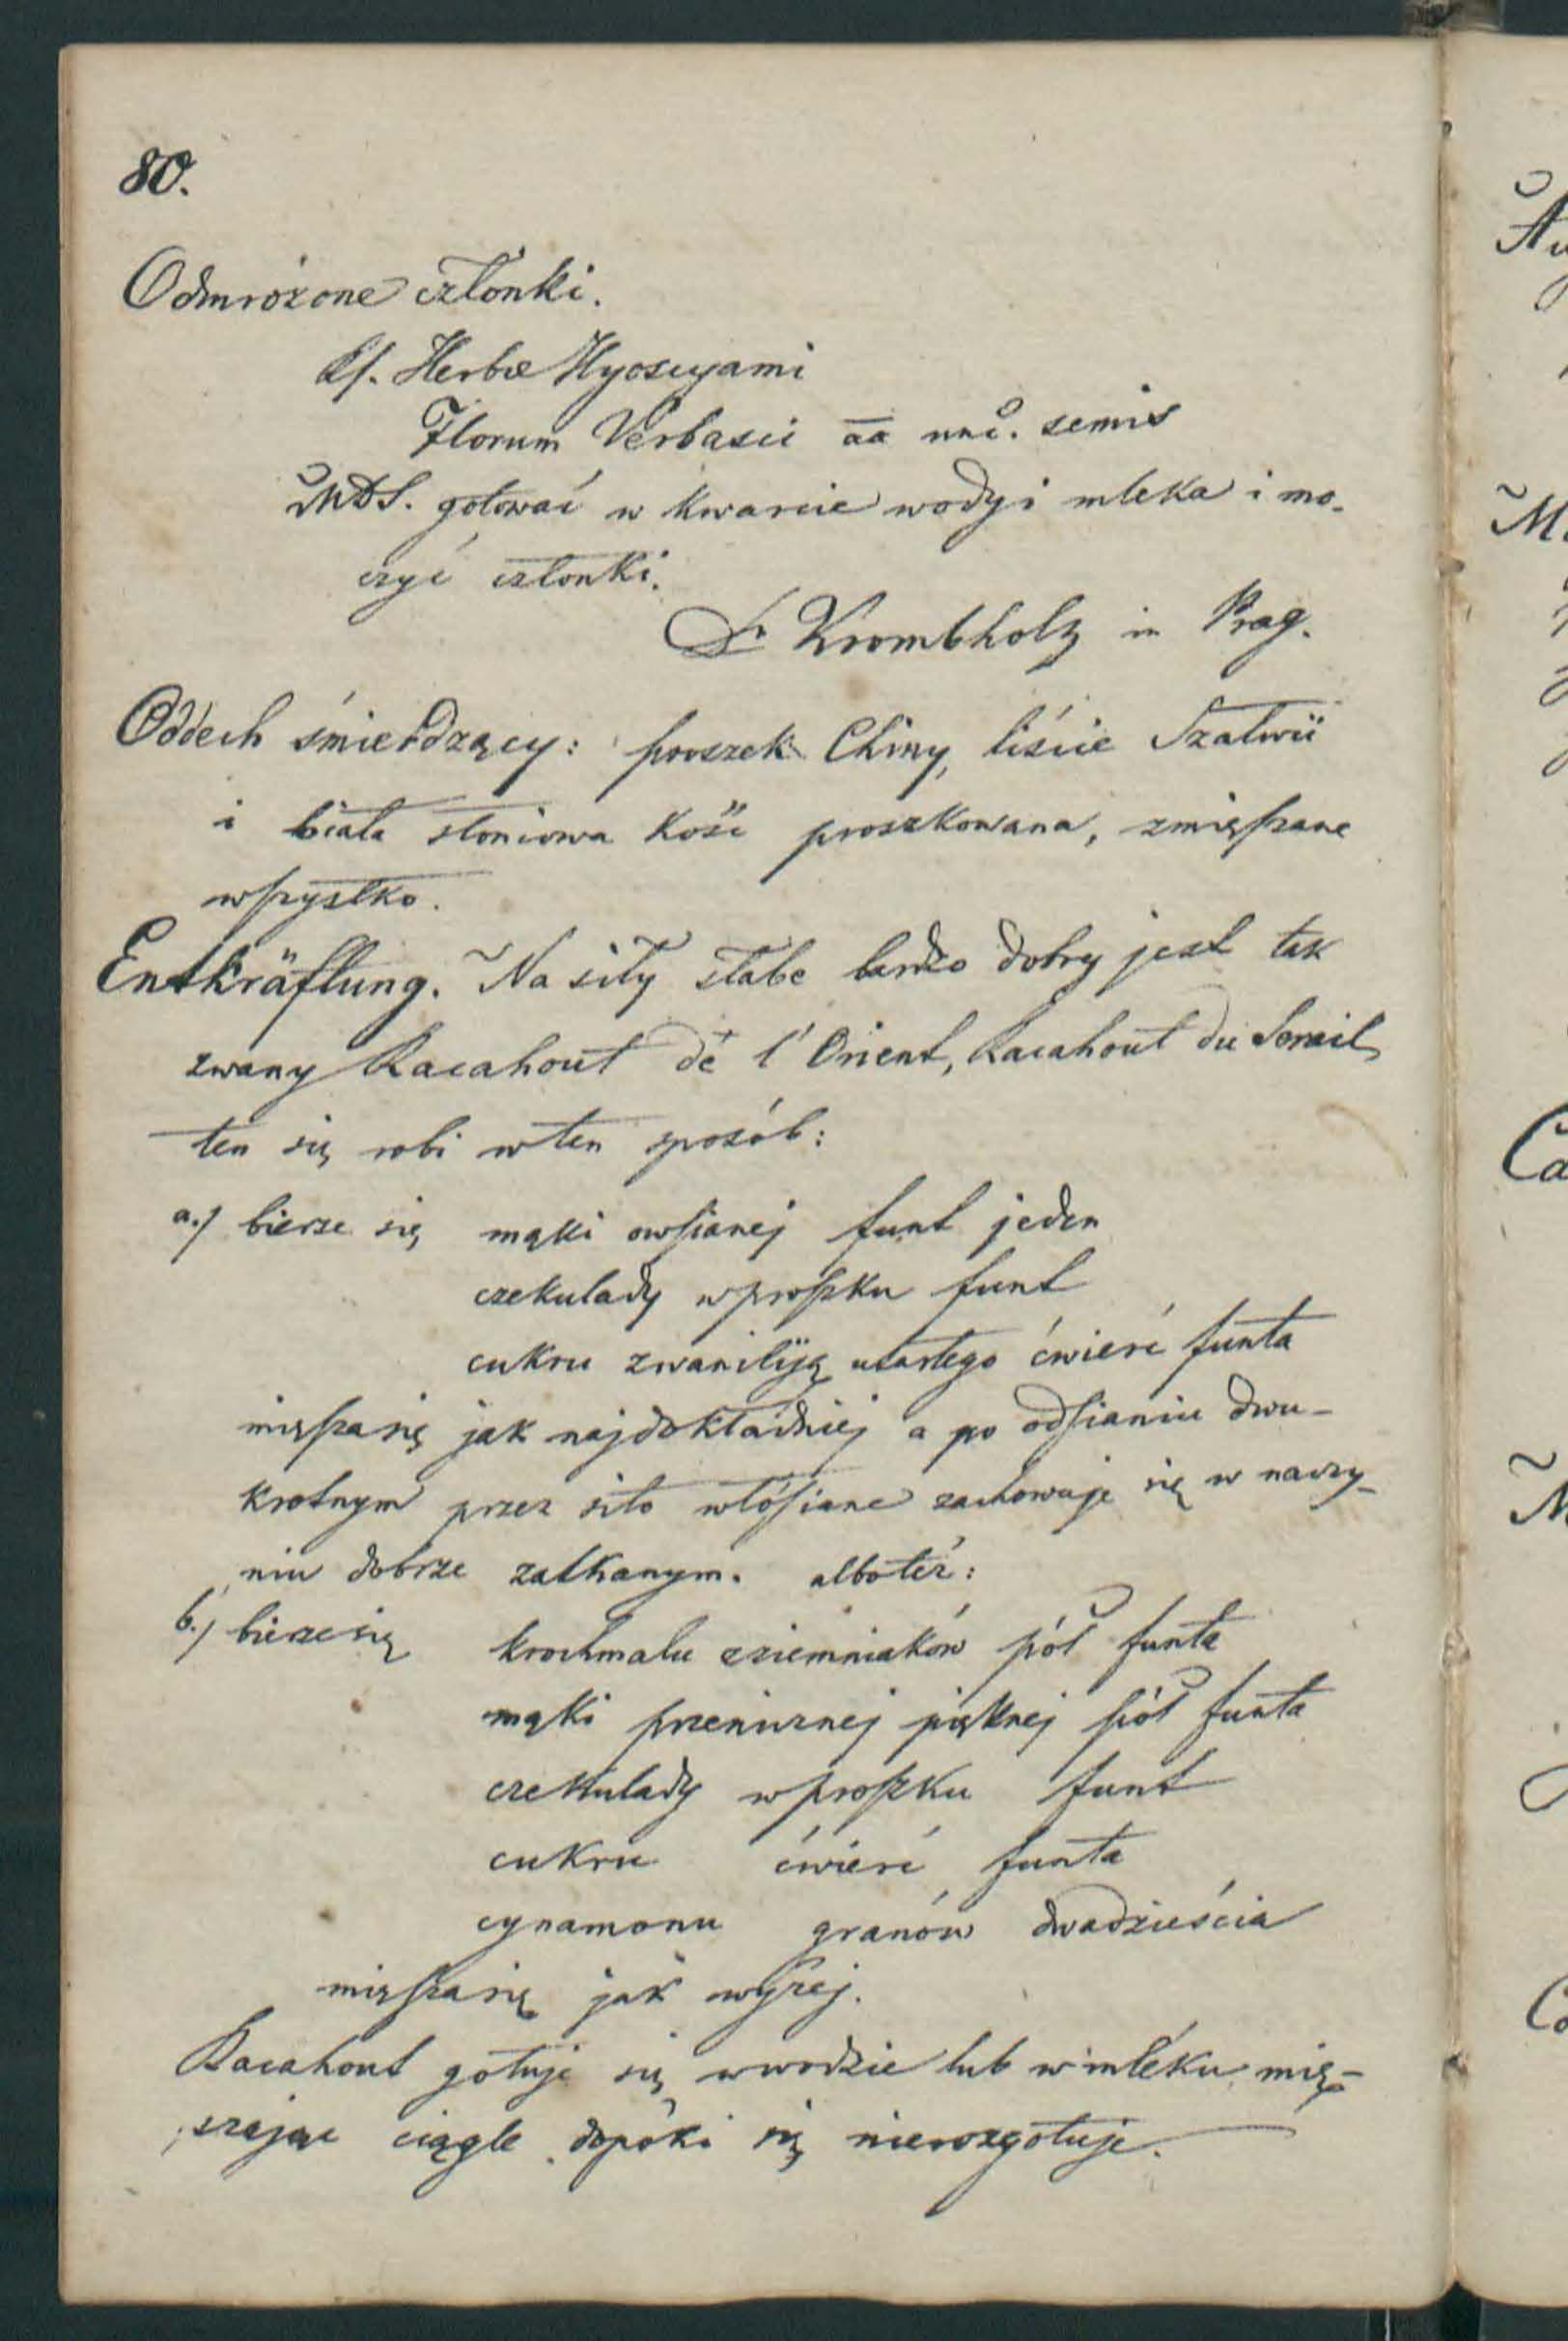 80.
Odmrożone członki.
Rp. Herbæ Hyoscyami
Florum Verbasci āā unc. semis
MDS. gotować w kwarcie wody i mleka i mo-
czyć członki.
Dr Krombholz in Prag.
Oddech śmierdzący: proszek Chiny, liście Szałwii
i biała słoniowa kość proszkowana, zmięszane
wszystko.
Entkräftung. Na siły słabe bardzo dobry jest tak
zwany Racahout de l'Orient, Racahout du Serail,
ten się robi w ten sposób:
a.) bierze się mąki owsianej funt jeden
czekulady w proszku funt
cukru z waniliją utartego ćwierć funta
mięsza się jak najdokładniej a po odsianiu dwu-
krotnym przez sito włósiane zachowuje się w naczy-
niu dobrze zatkanym. albo też:
b.) bierze się krochmalu z ziemniaków pół funta
mąki przenicznej pięknej pół funta
czekulady w proszku funt
cukru ćwierć funta
cynamonu granów dwadzieścia
mięsza się jak wyżej.
Racahout gotuje się w wodzie lub w mléku mię-
szając ciągle dopóki się nierozgotuje.